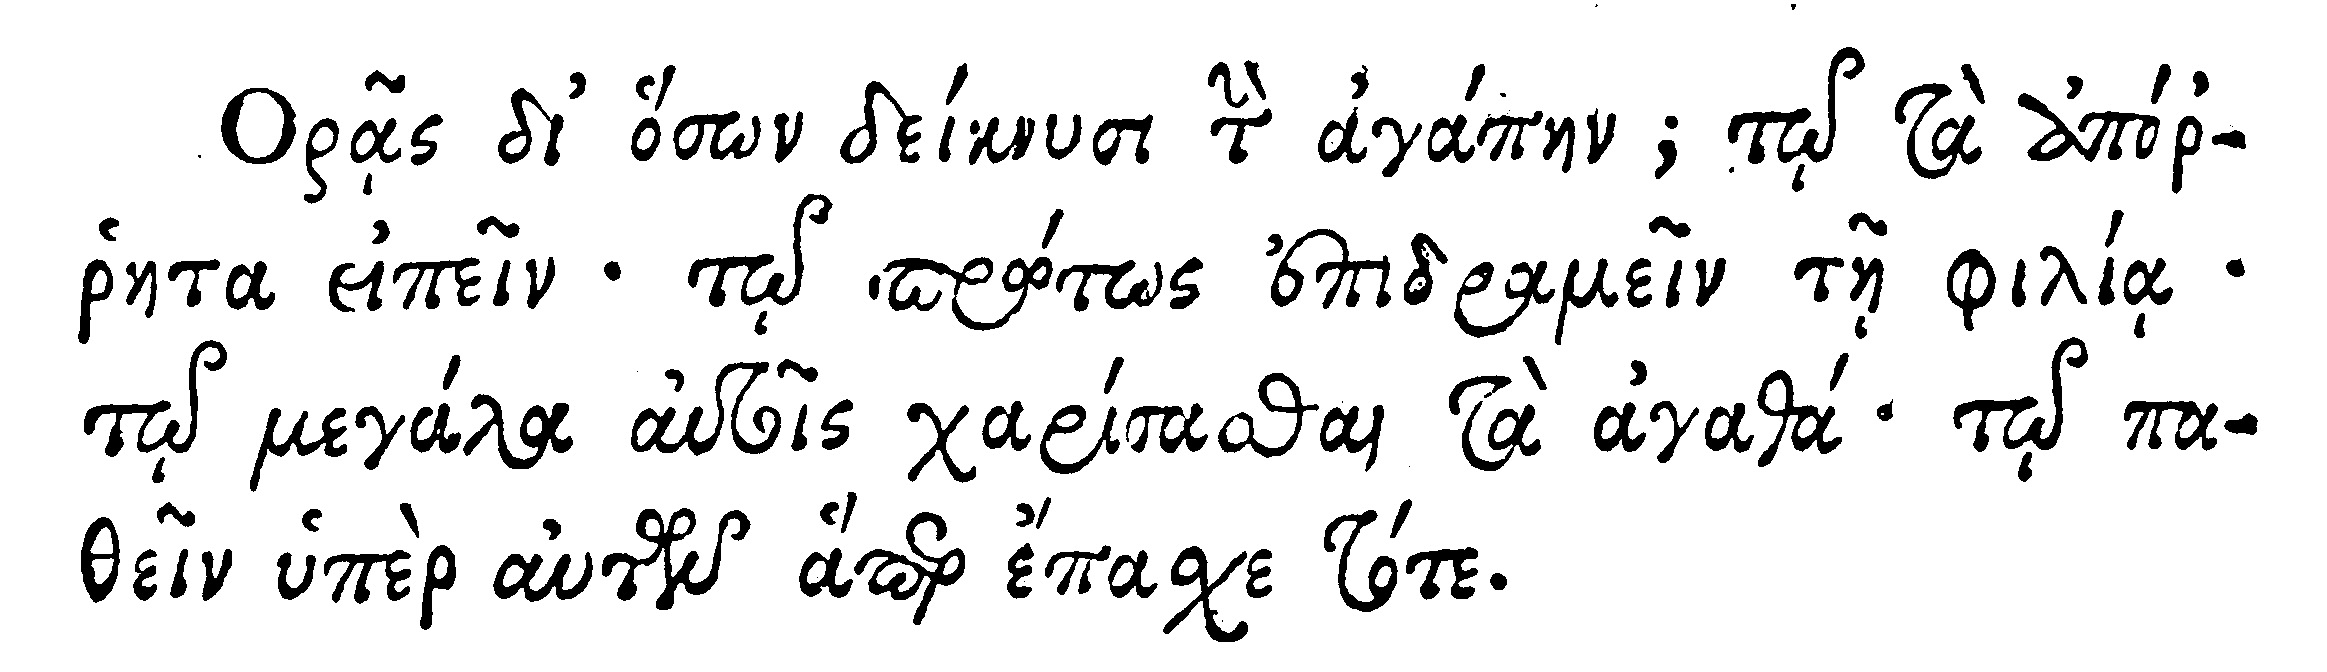 Ορᾷς δι' ὅσων δείκνυσι τὴν ἀγάπην; τῷ τὰ ἀπόῤ-
ῥητα εἰπεῖν· τῷ πρώτως ἐπιδραμεῖν τῇ φιλίᾳ·
τῷ μεγάλα αὐτοῖς χαρίσασθαι τὰ ἀγαθά· τῷ πα-
θεῖν ὑπὲρ αὐτῶν ἅπερ ἔπασχε τότε.